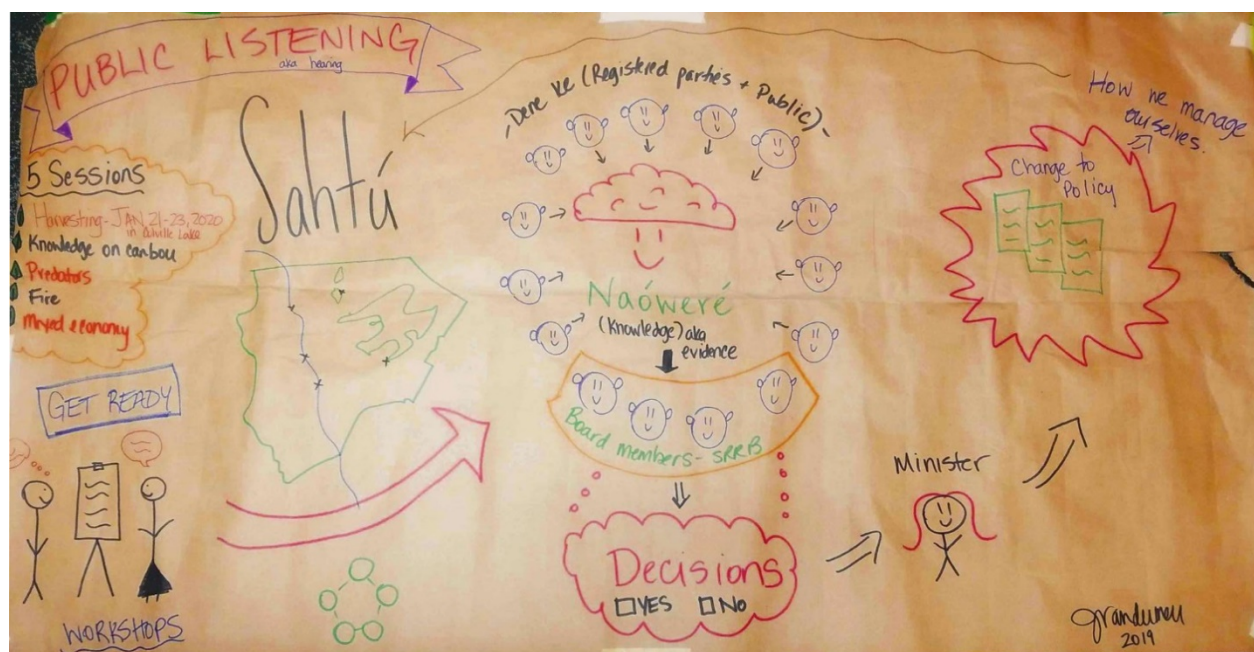 PUBLIC LISTENING
aka hearing
5 Sessions
Harvesting - JAN 21-23, 2020
in Colville Lake
Knowledge on caribou
Predators
Fire
Mixed economy
GET READY
WORKSHOPS
Sahtú
Dene Ke (Registered parties + Public)
Naóweré
(Knowledge) aka
evidence
Board members - SRRB
Decisions
YES NO
Minister
Change to
Policy
How we manage
ourselves.
2019